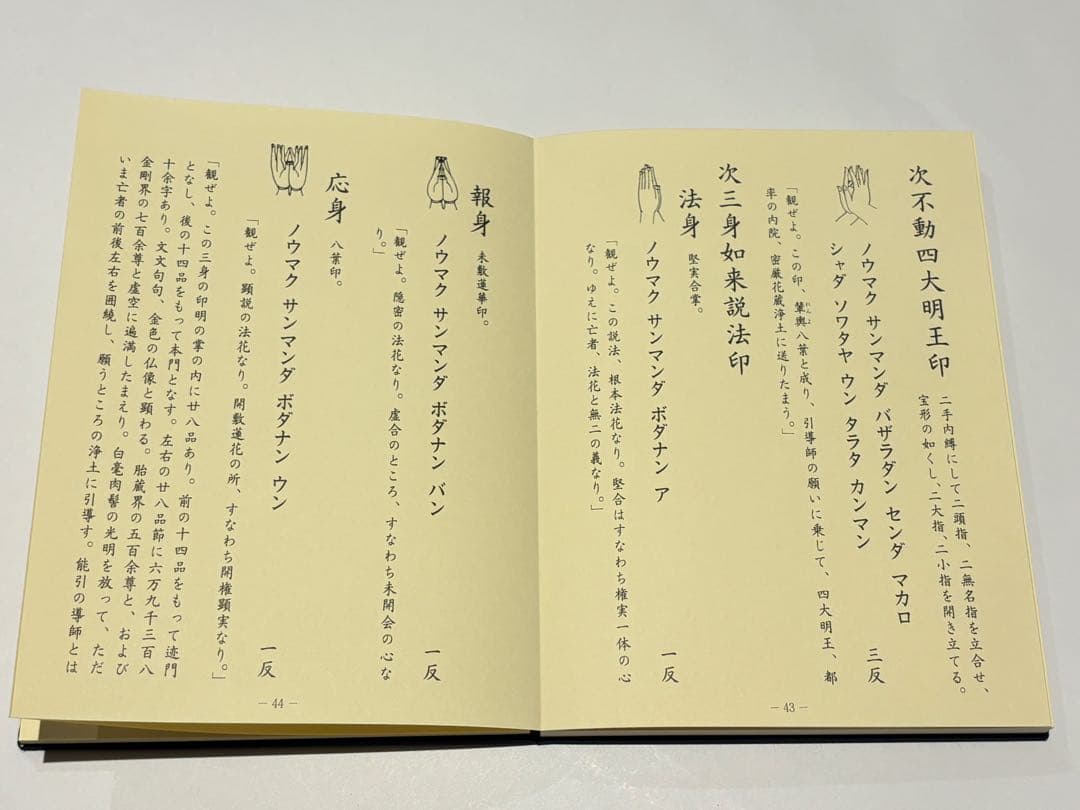 次不動四大明王印
二手内縛にして二頭指、二無名指を立合せ、
宝形の如くし、二大指、二小指を開き立てる。
ノウマク サンマンダ バザラダン センダ マカロ
シャダ ソワタヤ ウン タラタ カンマン
三反
「観ぜよ。この印、輦輿八葉と成り、引導師の願いに乗じて、四大明王、都
れんよ
率の内院、密厳花蔵浄土に送りたまう。」
次三身如来説法印
法身
堅実合掌。
ノウマク サンマンダ ボダナン ア
一反
「観ぜよ。この説法、根本法花なり。堅合はすなわち権実一体の心
なり。ゆえに亡者、法花と無二の義なり。」
- 43 -
報身
未敷蓮華印。
ノウマク サンマンダ ボダナン バン
一反
「観ぜよ。隠密の法花なり。虚合のところ、すなわち未開会の心な
り。」
応身
八葉印。
ノウマク サンマンダ ボダナン ウン
一反
「観ぜよ。顕説の法花なり。開敷蓮花の所、すなわち開権顕実なり。」
「観ぜよ。この三身の印明の掌の内に廿八品あり。前の十四品をもって迹門
となし、後の十四品をもって本門となす。左右の廿八品節に六万九千三百八
十余字あり。文文句句、金色の仏像と顕わる。胎蔵界の五百余尊と、および
金剛界の七百余尊と虚空に遍満したまえり。白毫肉髻の光明を放って、ただ
いま亡者の前後左右を囲繞し、願うところの浄土に引導す。能引の導師とは
- 44 -